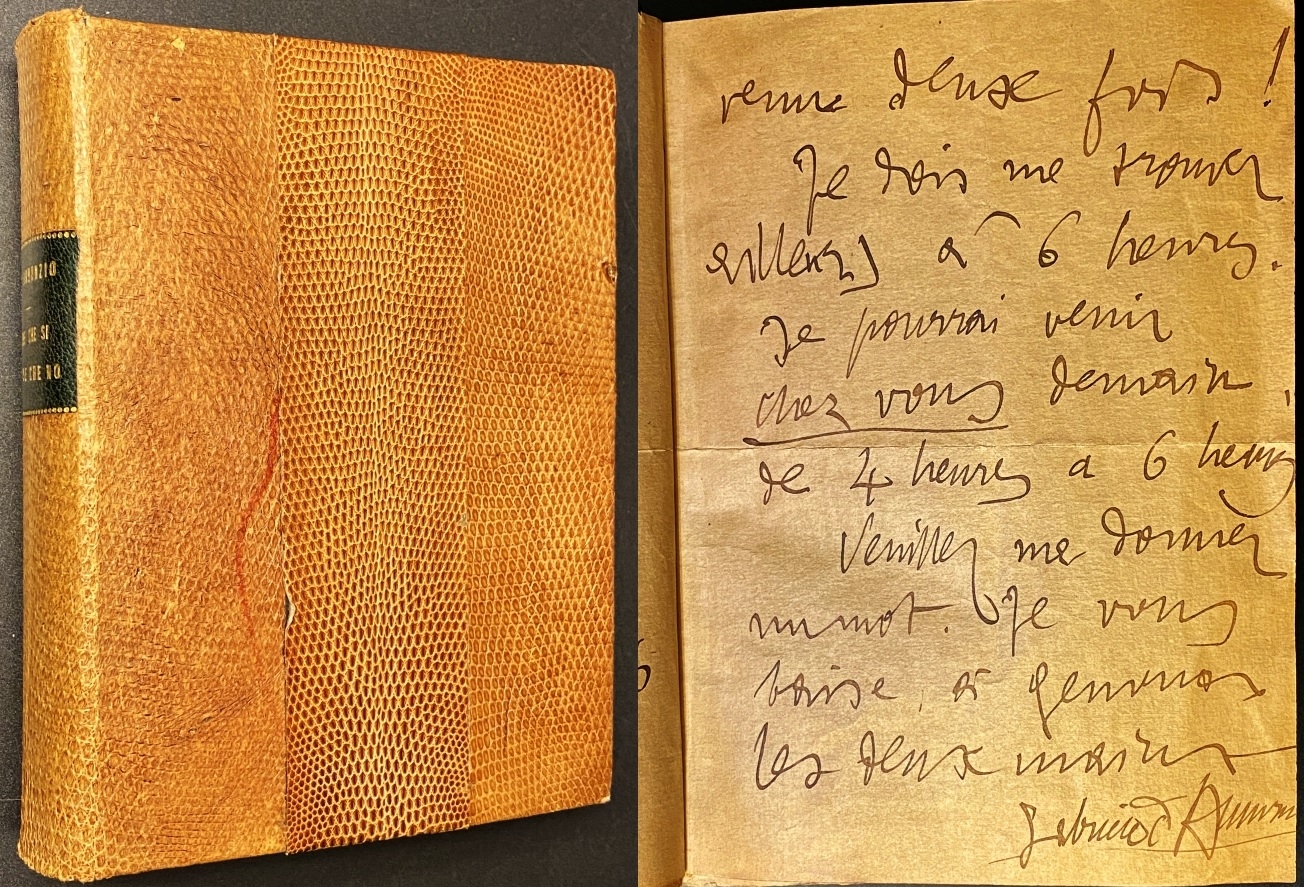 CHE SI
CHE NO
venue deux fois !
Je dois me trouver
ailleurs à 6 heures.
Je pourrai venir
chez vous demain,
de 4 heures a 6 heures
Veuillez me donner
un mot. Je vous
baise, à genoux
les deux mains
Gabriele d'Annun